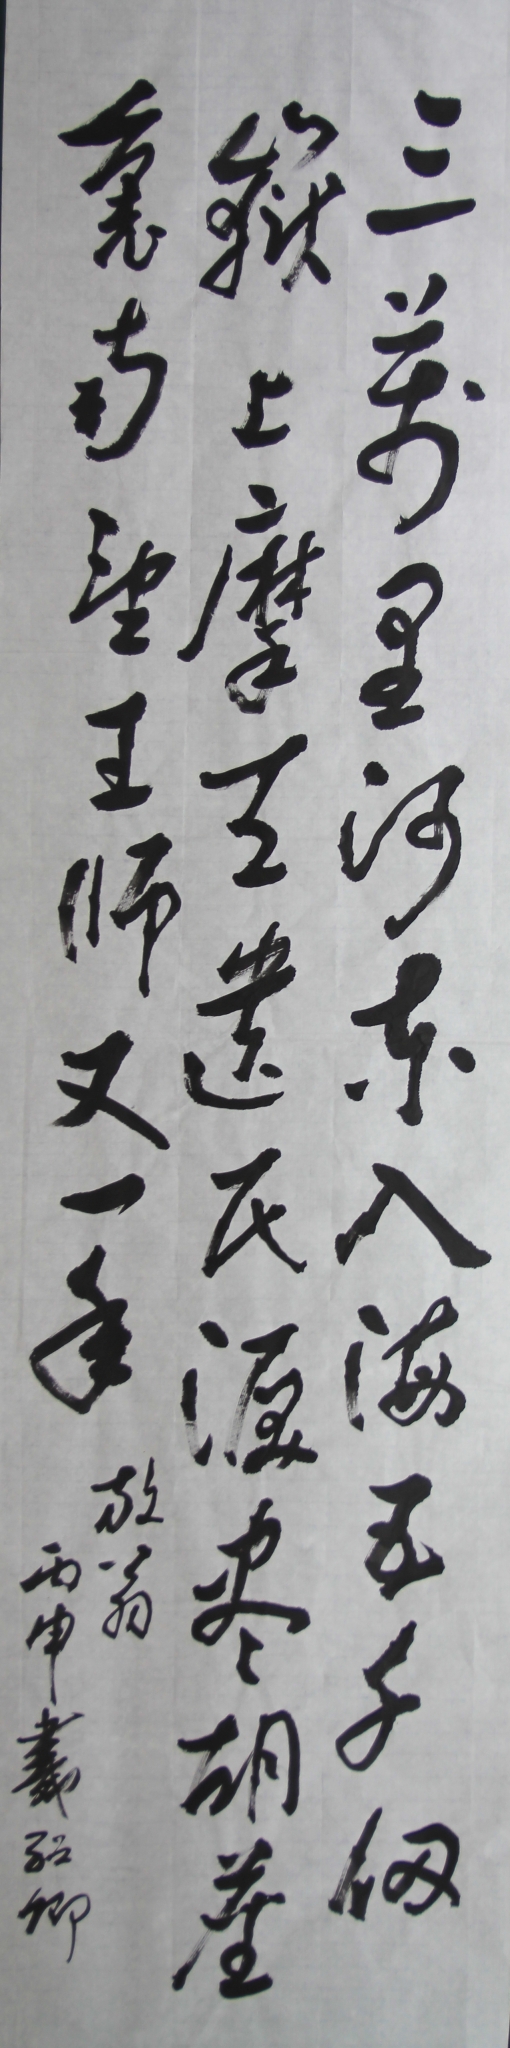 三萬里河東入海五千仞
嶽上摩天遺民淚盡胡塵
裏南望王師又一年
放翁
丙申戴弘卿